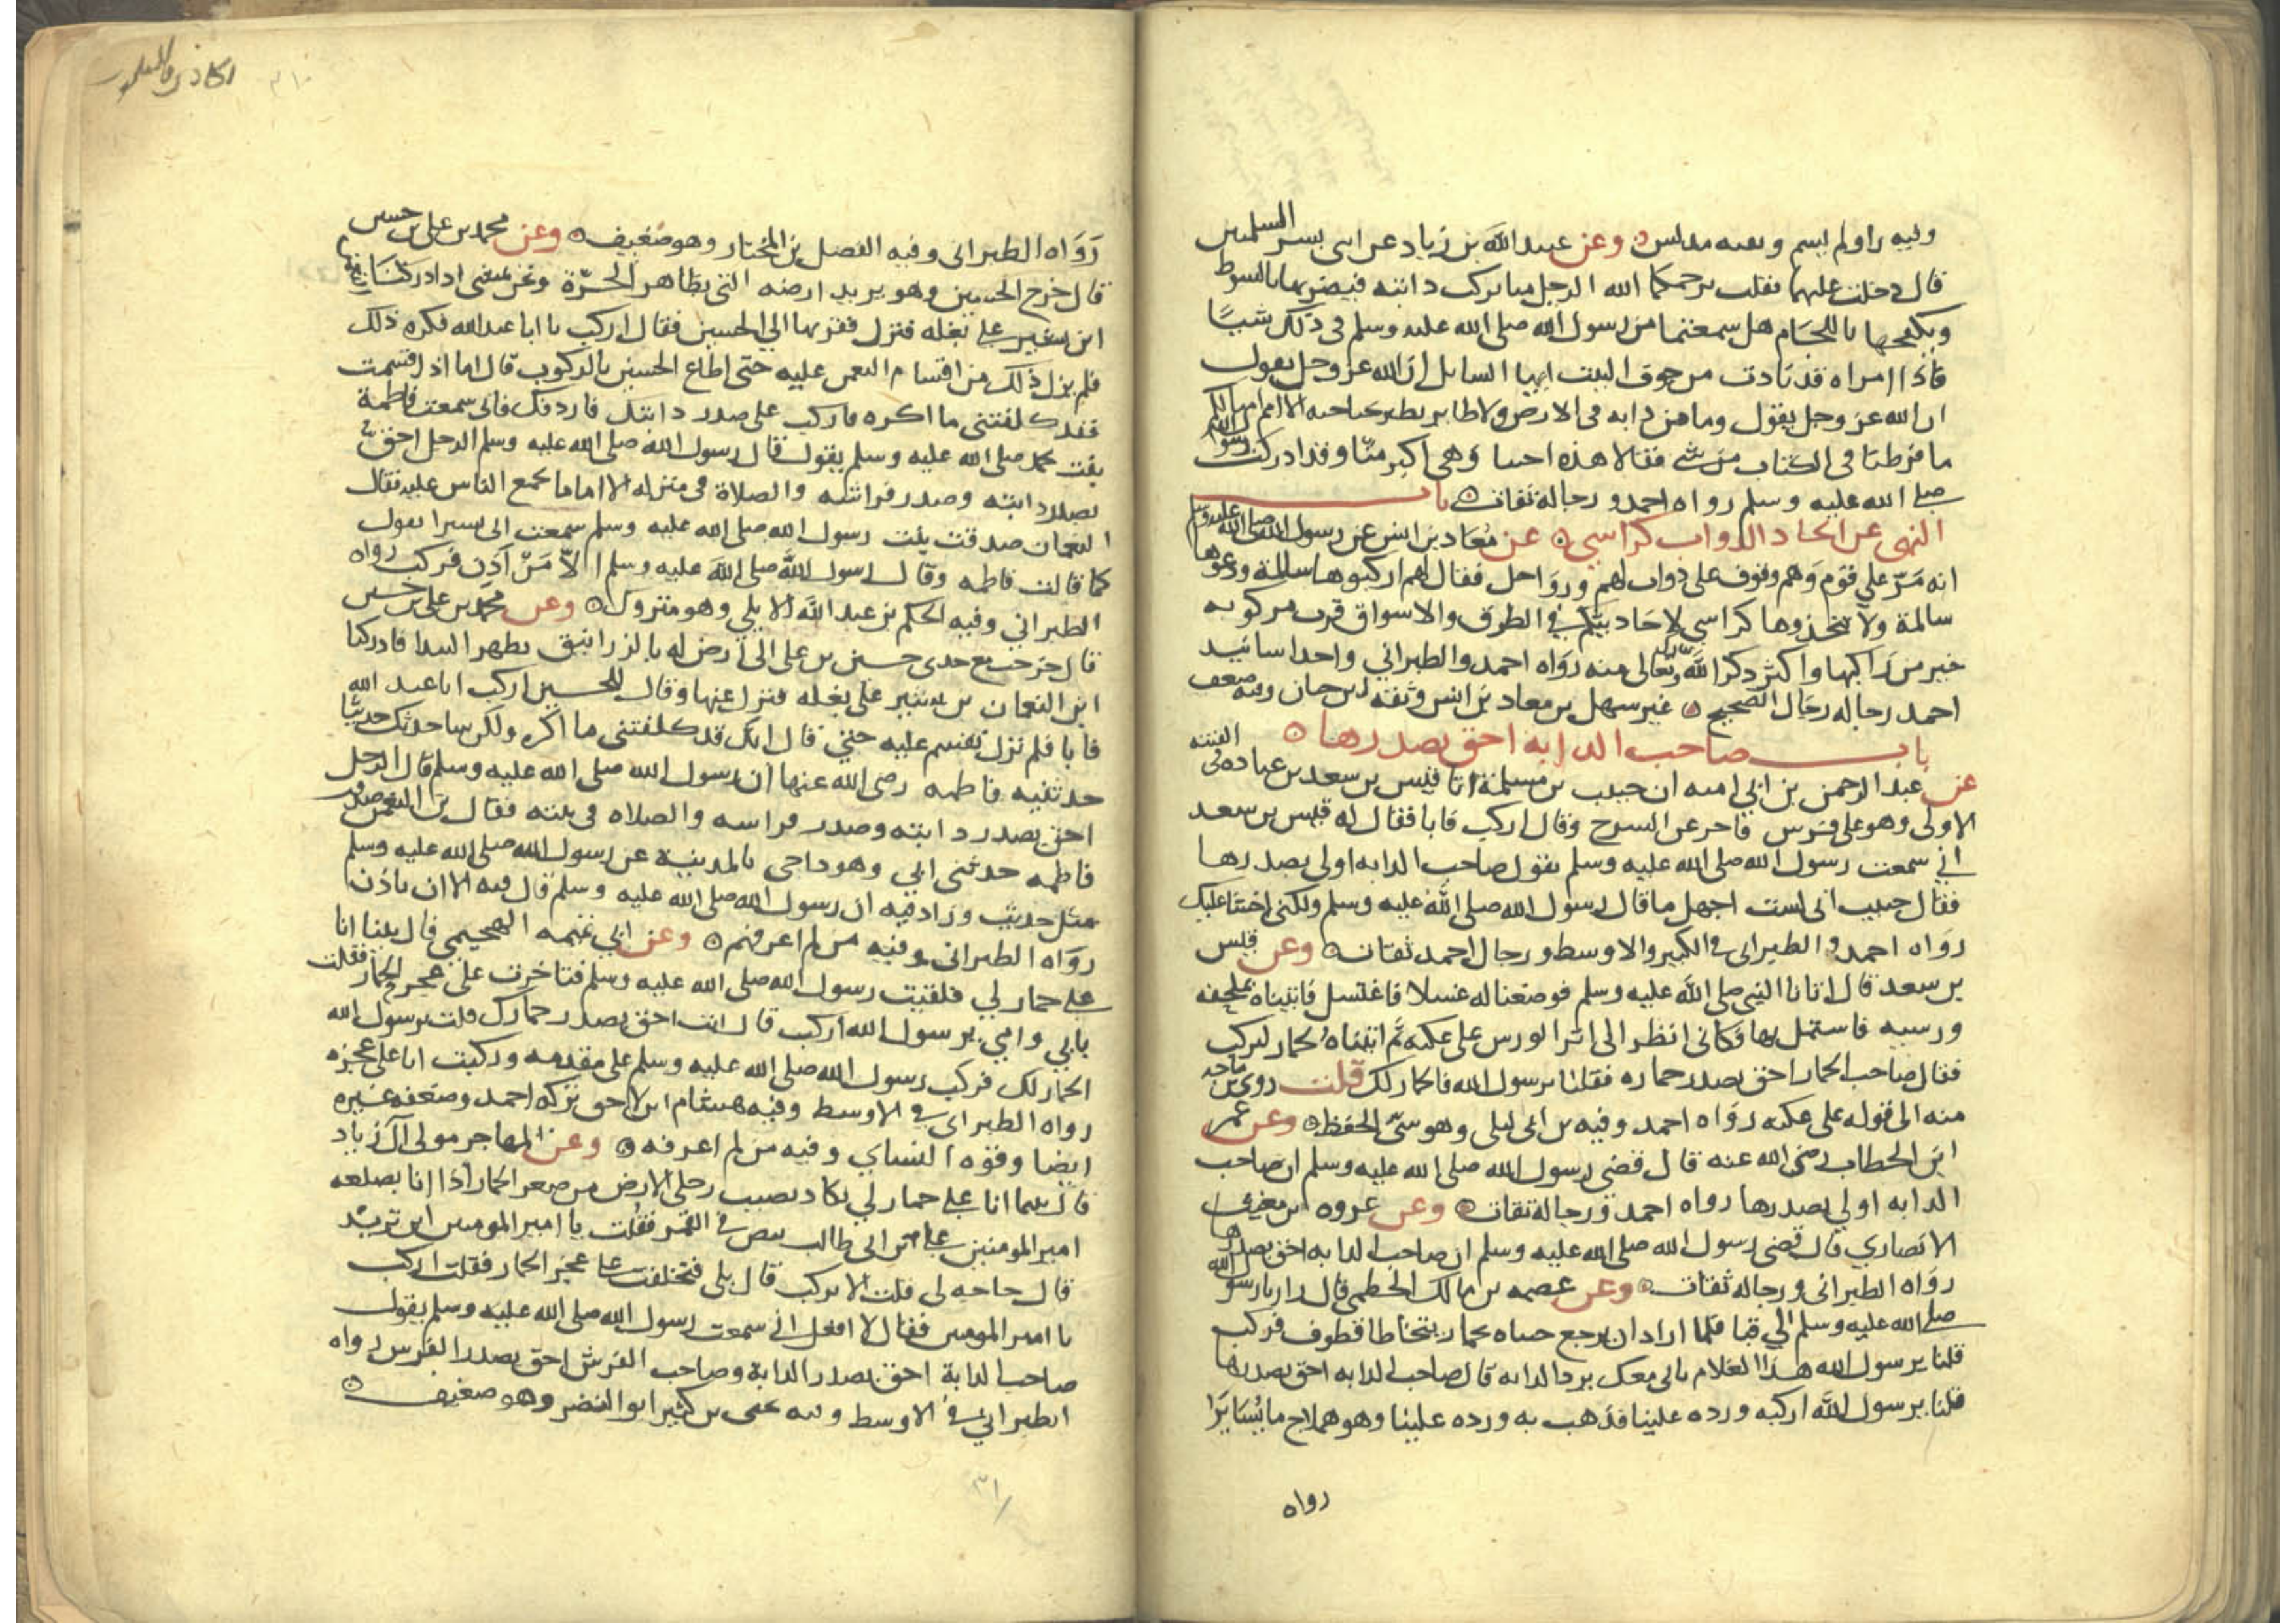 وفيه راو لم يسم وبقيه مدلس وعن عبد الله بن زياد عن ابني بسر السلميين
قال دخلت عليهما فقلت يرحمكما الله الرجل منا يركب دابته فيضربها بالسوط
ويكفحها باللجام هل سمعتما من رسول الله صلى الله عليه وسلم في ذلك شيئا
فاذا امراه قد نادت من جوف البيت ايها السايل ان الله عز وجل يقول
ان الله عز وجل يقول وما من دابه في الارض ولا طاير يطير بجناحيه الا امم امثالكم
ما فرطنا في الكتاب من شي فقالا هذه اختنا وهي اكبر منا وقد ادركت رسول الله
صلى الله عليه وسلم رواه احمد ورجاله ثقات باب
النهى عن اتخاذ الدواب كراسي عن معاذ بن انس عن رسول الله صلى الله عليه وسلم
انه مر على قوم وهم وقوف على دواب لهم ورواحل فقال لهم اركبوها سالمة ودعوها
سالمة ولا تتخذوها كراسي لاحاديثكم في الطرق والاسواق فرب مركوبه
خير من راكبها واكثر ذكرا لله تبارك وتعالى منه رواه احمد والطبراني واحد اسانيد
احمد رجاله رجال الصحيح غير سهل بن معاذ بن انس وثقه ابن حبان وفيه ضعف
باب صاحب الدابه احق بصدرها
عن عبد الرحمن بن ابي اميه ان حبيب بن مسلمة اتا قيس بن سعد بن عباده في الفتنه
الاولى وهو على فرس فاخر عن السرج وقال اركب فابا فقال له قيس بن سعد
اني سمعت رسول الله صلى الله عليه وسلم يقول صاحب الدابه اولى بصدرها
فقال حبيب اني لست اجهل ما قال رسول الله صلى الله عليه وسلم ولكني اخشا عليك
رواه احمد والطبراني في الكبير والاوسط ورجال احمد ثقات وعن قيس
بن سعد قال اتانا النبي صلى الله عليه وسلم فوضعنا له غسلا فاغتسل فاتيناه بملحفه
ورسيه فاشتمل بها فكاني انظر الى اثر الورس على عكنه ثم اتيناه بحمار ليركب
فقال صاحب الحمار احق بصدر حماره فقلنا يرسول الله فالحمار لك قلت روى بن ماجه
منه الى قوله على عكنه رواه احمد وفيه بن ابي ليلى وهو سئ الحفظ وعن عمر
ابن الخطاب رضي الله عنه قال قضى رسول الله صلى الله عليه وسلم ان صاحب
الدابه اولي بصدرها رواه احمد ورجاله ثقات وعن عروه بن مغيث
الانصاري قال قضى رسول الله صلى الله عليه وسلم ان صاحب الدابه احق بصدرها
رواه الطبراني ورجاله ثقات وعن عصمه بن مالك الخطمي قال زار رسول الله
صلى الله عليه وسلم الي قبا فلما اراد ان يرجع جياه بحمار قطوف فركب
قلنا يرسول الله هذا الغلام ياتي معك يرد الدابه قال صاحب الدابه احق بصدرها
قلنا يرسول الله اركبه ورده علينا فذهب به ورده علينا وهو هملاج ما يسايرا
رواه
رواه الطبراني وفيه الفضل بن المختار وهو ضعيف وعن محمد بن علي بن حسين
قال خرج الحسين وهو يريد ارضه التي بظاهر الحرة ونحن نمشي اذ ادركنا
ابن بشير على بغله فنزل فقربها الي الحسين فقال اركب يا ابا عبد الله فكره ذلك
فلم يزل ذلك من اقسام النعمن عليه حتى اطاع الحسين بالركوب قال اما اذ اقسمت
فقد كلفتني ما اكره فاركب على صدر دابتك فاردفك فاني سمعت فاطمة
بنت محمد صلى الله عليه وسلم يقول قال رسول الله صلى الله عليه وسلم الرجل احق
بصدر دابته وصدر فراشه والصلاة في منزله الا اماما يجمع الناس عليه فقال
النعمان صدقت بنت رسول الله صلى الله عليه وسلم سمعت ابي بشيرا يقول
كما قالت فاطمه وقال رسول الله صلى الله عليه وسلم الا من اذن فركب رواه
الطبراني وفيه الحكم بن عبد الله الايلي وهو متروك وعن محمد بن علي بن حسين
قال خرجت مع جدي حسين بن علي الى ارض له فادركنا
ابن النعمان بن بشير على بغله فنزل عنها وقال للحسين اركب ابا عبد الله
فابا فلم يزل يقسم عليه حتى قال انك قد كلفتني ما اكره ولكن ساحدثك حديثا
حدثنيه فاطمه رضي الله عنها ان رسول الله صلى الله عليه وسلم قال الرجل
احق بصدر دابته وصدر فراشه والصلاه في بيته فقال بن النعمن صدقت
فاطمه حدثني ابي وهو داجي بالمدينة عن رسول الله صلى الله عليه وسلم
مثل حديث وزاد فيه ان رسول الله صلى الله عليه وسلم قال فيه الا ان ياذن
رواه الطبراني وفيه من لم اعرفهم وعن ابي الهجيمي قال بينا انا
على حمار لي فلقيت رسول الله صلى الله عليه وسلم فتاخرت على عجز الحمار فقلت
بابي وامي يرسول الله اركب قال انت احق بصدر حمارك قلت يرسول الله
الحمار لك فركب رسول الله صلى الله عليه وسلم على مقدمه وركبت انا على عجزه
رواه الطبراني في الاوسط وفيه هشام ابن لاحق تركه احمد وضعفه غيره
ايضا وقوه النساي وفيه من لم اعرفه وعن المهاجر مولى آل زياد
قال بينما انا على حمار لي يكاد يصيب رجلي الارض من صغر الحمار اذا انا بصلعه
امير المومنين علي بن ابي طالب في القمر فقلت يا امير المومنين اين تريد
قال حاجه لي قلت الا تركب قال بلى فتخلفت على عجز الحمار فقلت اركب
يا امير المومنين فقال لا افعل اني سمعت رسول الله صلى الله عليه وسلم يقول
صاحب الدابة احق بصدر الدابة وصاحب الفرش احق بصدر الفرش رواه
الطبراني في الاوسط وفيه يحيى بن كثير ابو النضر وهو ضعيف
٣١